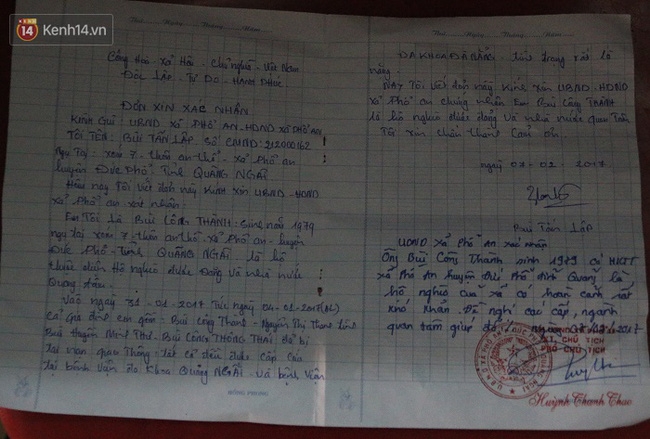 14 Kenh14.vn
Thứ Ngày Tháng Năm
Cộng Hoà Xả Hội Chủ nghĩa Việt Nam
Độc Lập Tự Do Hạnh Phúc
ĐƠN XIN XÁC NHẬN
Kính Gửi: UBND XÃ PHỔ AN. HĐND XÃ PHỔ AN
TÔI TÊN: BÙI TẤN LẬP SỐ CMND: 212000162
Ngụ Tại: xóm 7 - thôn an thổ - xã Phổ an
huyện ĐứC PHỔ Tỉnh QUẢNG NGÃI
Hôm nay Tôi Viết đơn này Kính xin UBND - HĐND
xả Phổ an xác nhận:
Em Tôi là BÙI CÔNG THÀNH - Sinh năm 1979
ngụ tại xóm 7 - thôn an thổ - xã Phổ an - huyện
Đức Phổ - Tỉnh QUẢNG NGÃI là hộ
thuộc diện Hộ nghèo được Đảng Và nhà nước
Quan Tâm.
Vào ngày 31 - 01 - 2017 Tức ngày 04 - 01 - 2017 (AL)
Cả gia đình em gồm: Bùi Công Thành - Nguyễn Thị Thanh
Bùi Huyền BÙI CÔNG THÔNG THÁI Đã bị
tai nạn giao Thông tất cả đều được cấp cứu
Tại bệnh viện đa khoa QUẢNG NGÃI và bệnh viện
HỒNG PHONG
ĐA KHOA ĐÀ NẴNG. Tình trạng rất là
nặng.
NAY Tôi Viết đơn này Kính xin UBND - HĐND
xả Phổ an chứng nhận Em Bùi Công THÀNH
là hộ nghèo được đảng Và nhà nước quan Tâm
Tôi xin chân thành Cảm ơn
ngày 07 - 02 - 2017
Bùi Tấn Lập
UBND Xã Phổ An xác nhận
Ông Bùi Công Thành sinh 1979 có HKTT
xã Phổ An huyện Đức Phổ tỉnh Quảng là
hộ nghèo của xã có hoàn cảnh rất
khó khăn. Đề nghị các cấp, ngành
quan tâm giúp đỡ
KT. CHỦ TỊCH
PHÓ CHỦ TỊCH
Huỳnh Thanh Thao